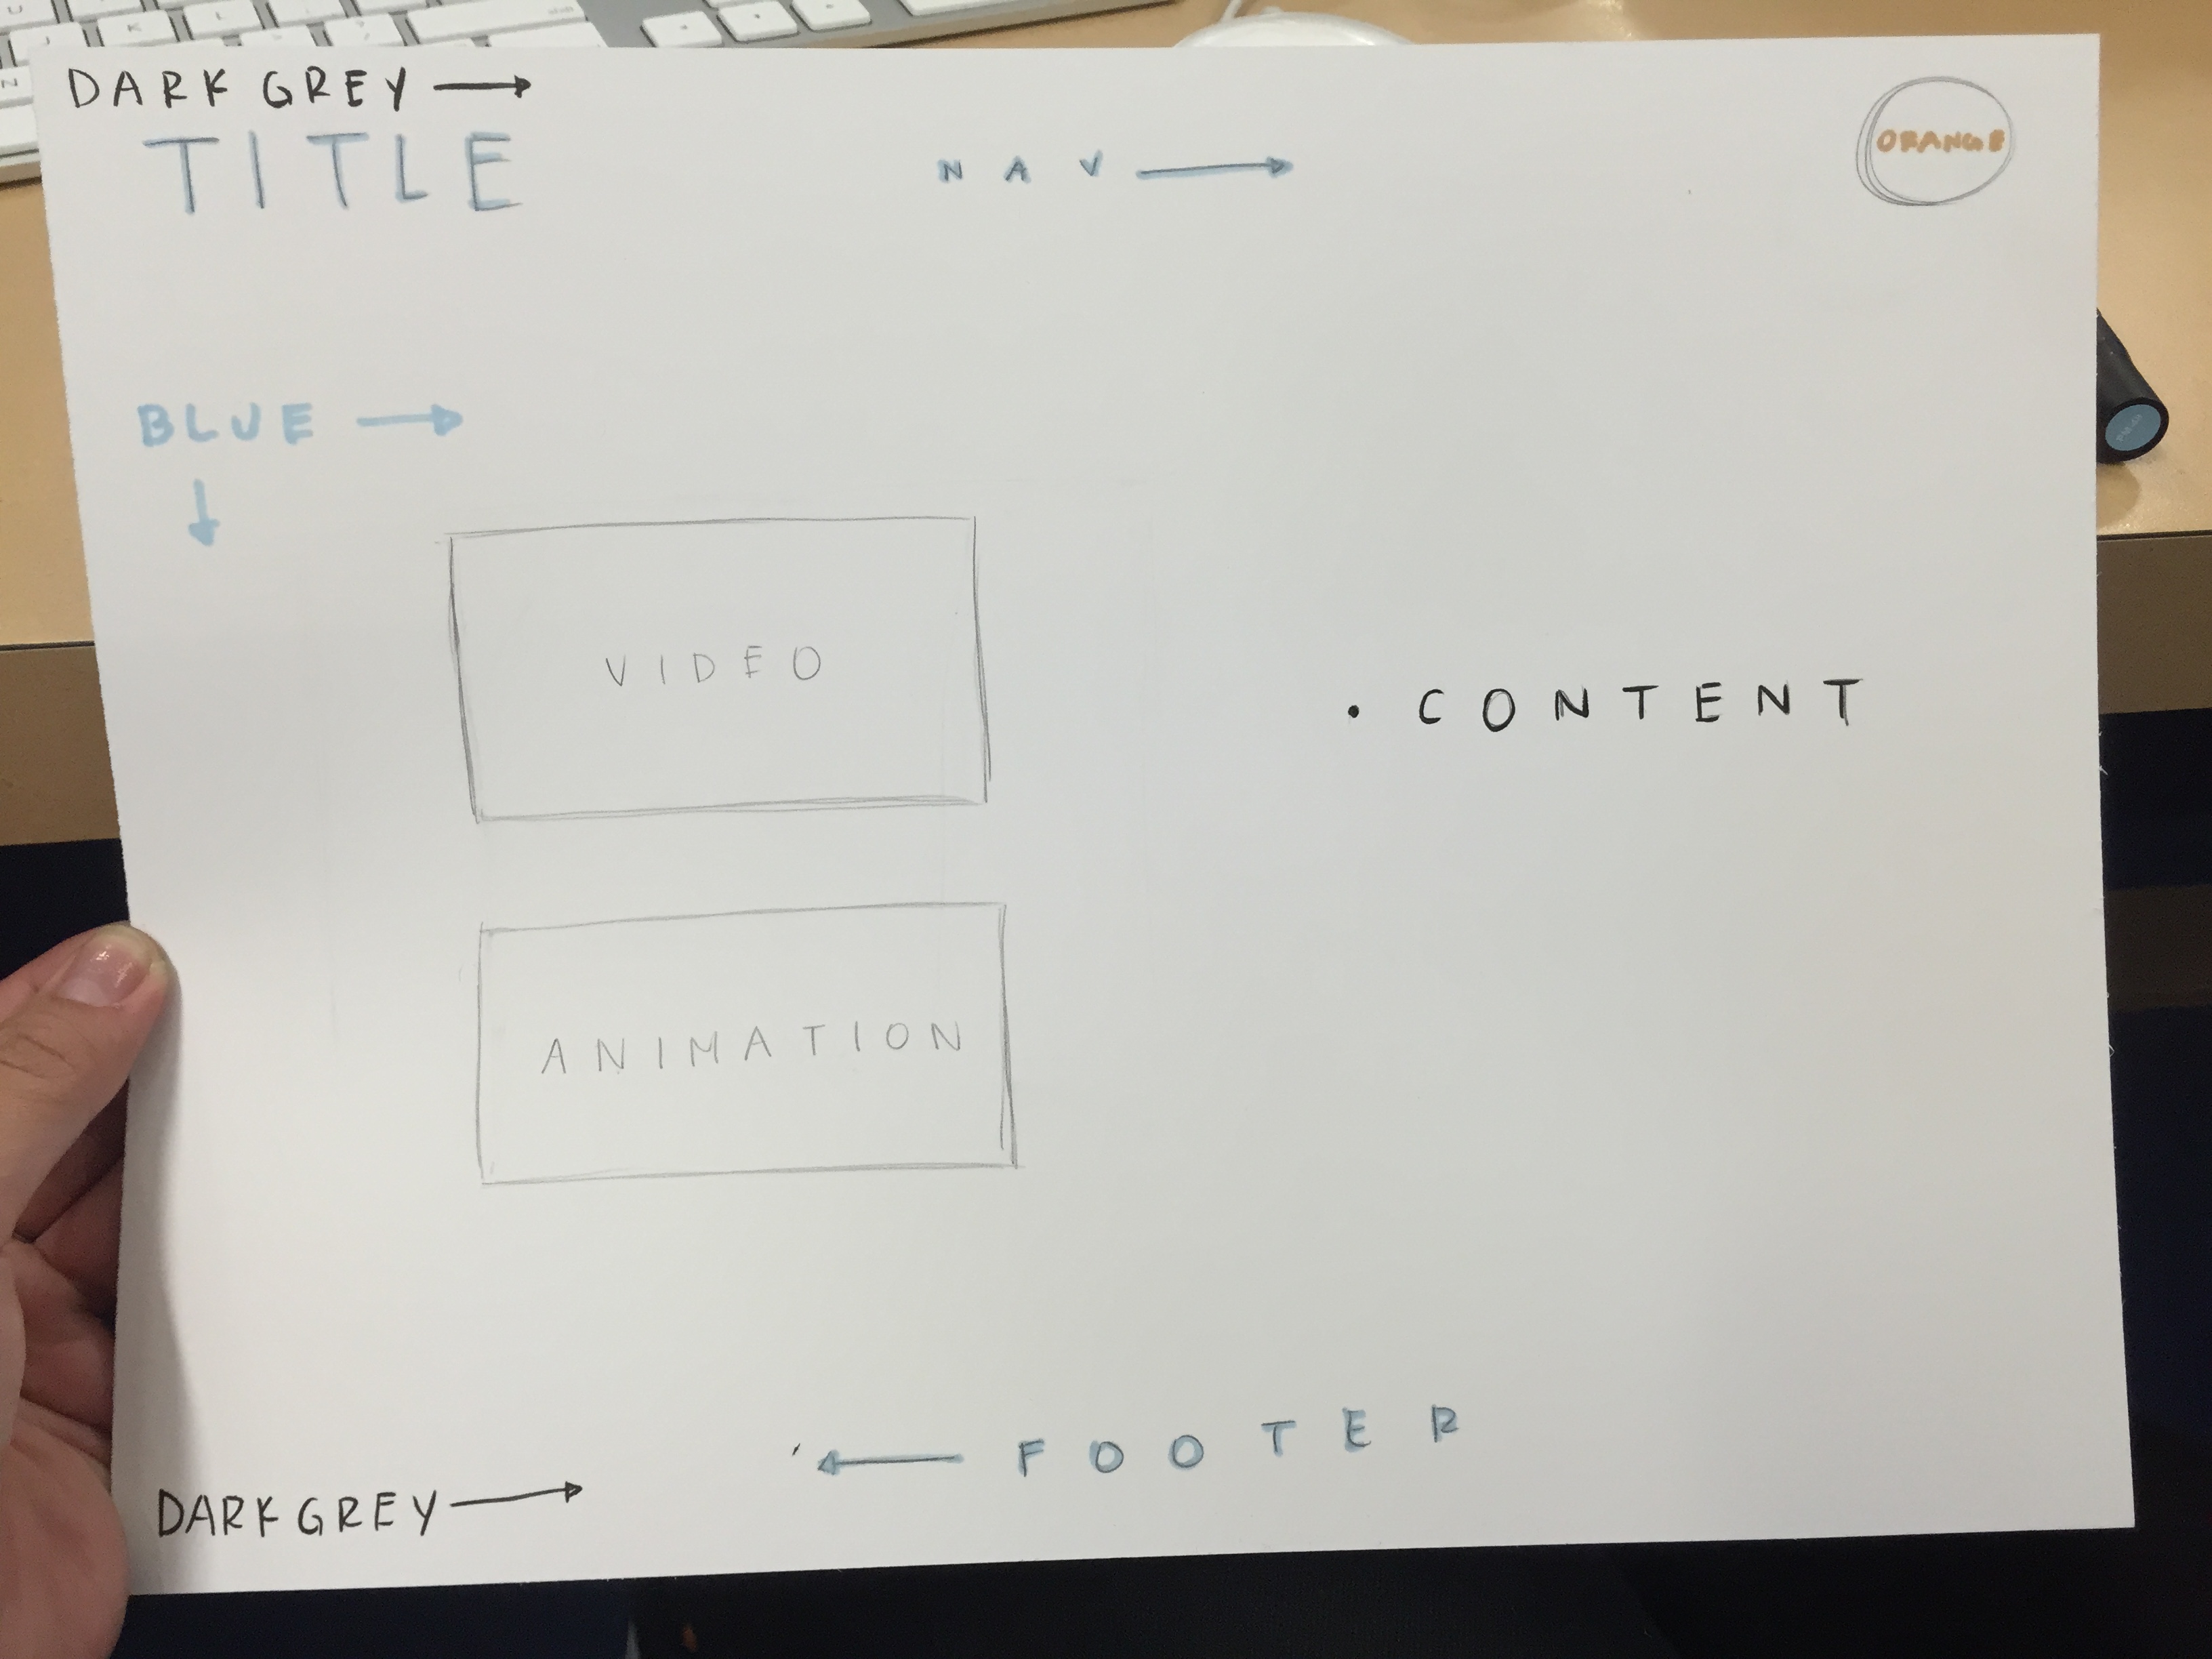 DARK GREY →
TITLE
NAV →
ORANGE
BLUE →
↓
VIDEO
• CONTENT
ANIMATION
← FOOTER
DARK GREY →